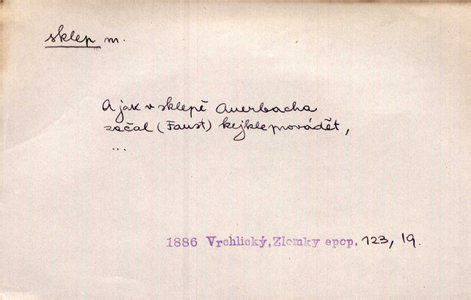 sklep m.
A jak v sklepě Auerbacha
začal (Faust) kejkle provádět,
...
1886 Vrchlický, Zlomky epop. 123, 19.